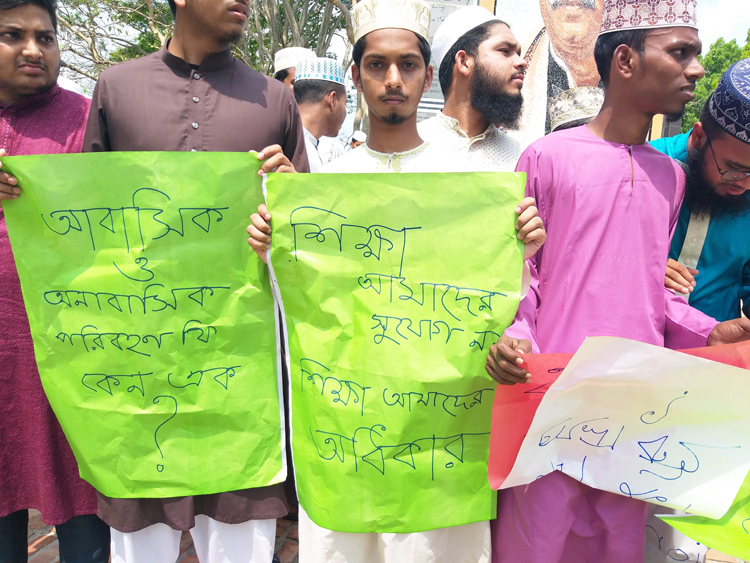 আবাসিক
ও
অনাবাসিক
পরিবহণ ফি
কেন এক
?
শিক্ষা
আমাদের
সুযোগ না
শিক্ষা আমাদের
অধিকার